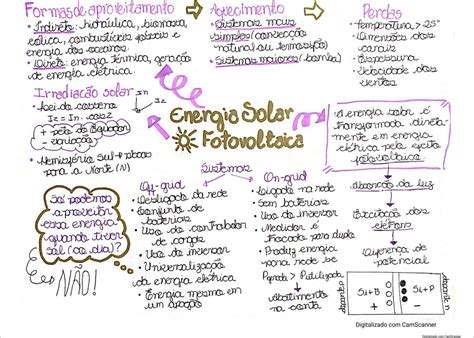 Formas de aproveitamento
• Indireta: hidráulica, biomassa,
eólica, combustíveis fósseis e
energia dos oceanos.
• Direta: energia térmica, geração
de energia elétrica.
Aquecimento
• Sistemas mais
simples (convecção
natural ou termosifão)
• Sistemas maiores (bomba)
Perdas
• Temperatura > 25°
• Dimensões dos
cabos
• Dispersão
• Velocidade dos
Irradiação solar
• Lei do cosseno
Iz = In . cosz
+ perto do Equador
- variação
• Hemisfério Sul → placas
para a Norte (N)
In
Iz
Energia Solar
Fotovoltaica
A energia solar é
transformada direta-
mente em energia
elétrica pelo efeito
fotovoltaico
Absorção da luz
Excitação dos
elétrons
Diferença de
potencial
Só podemos
aproveitar
essa energia
quando tiver
sol (ou dia)?
NÃO!
Sistemas
Off-grid
• Desligado da rede
• Conjunto de
baterias
• Uso do controlador
de carga
• Uso do inversor
• Universalização
da energia elétrica
• Energia mesmo em
um apagão
On-grid
• Ligado na rede
• Sem baterias
• Uso do inversor
• Medidor é
trocado para duplo
• Produz energia
para rede se
Gerada > Utilizada
Abatimento
na conta
Si+B
Si+P
Digitalizado com CamScanner